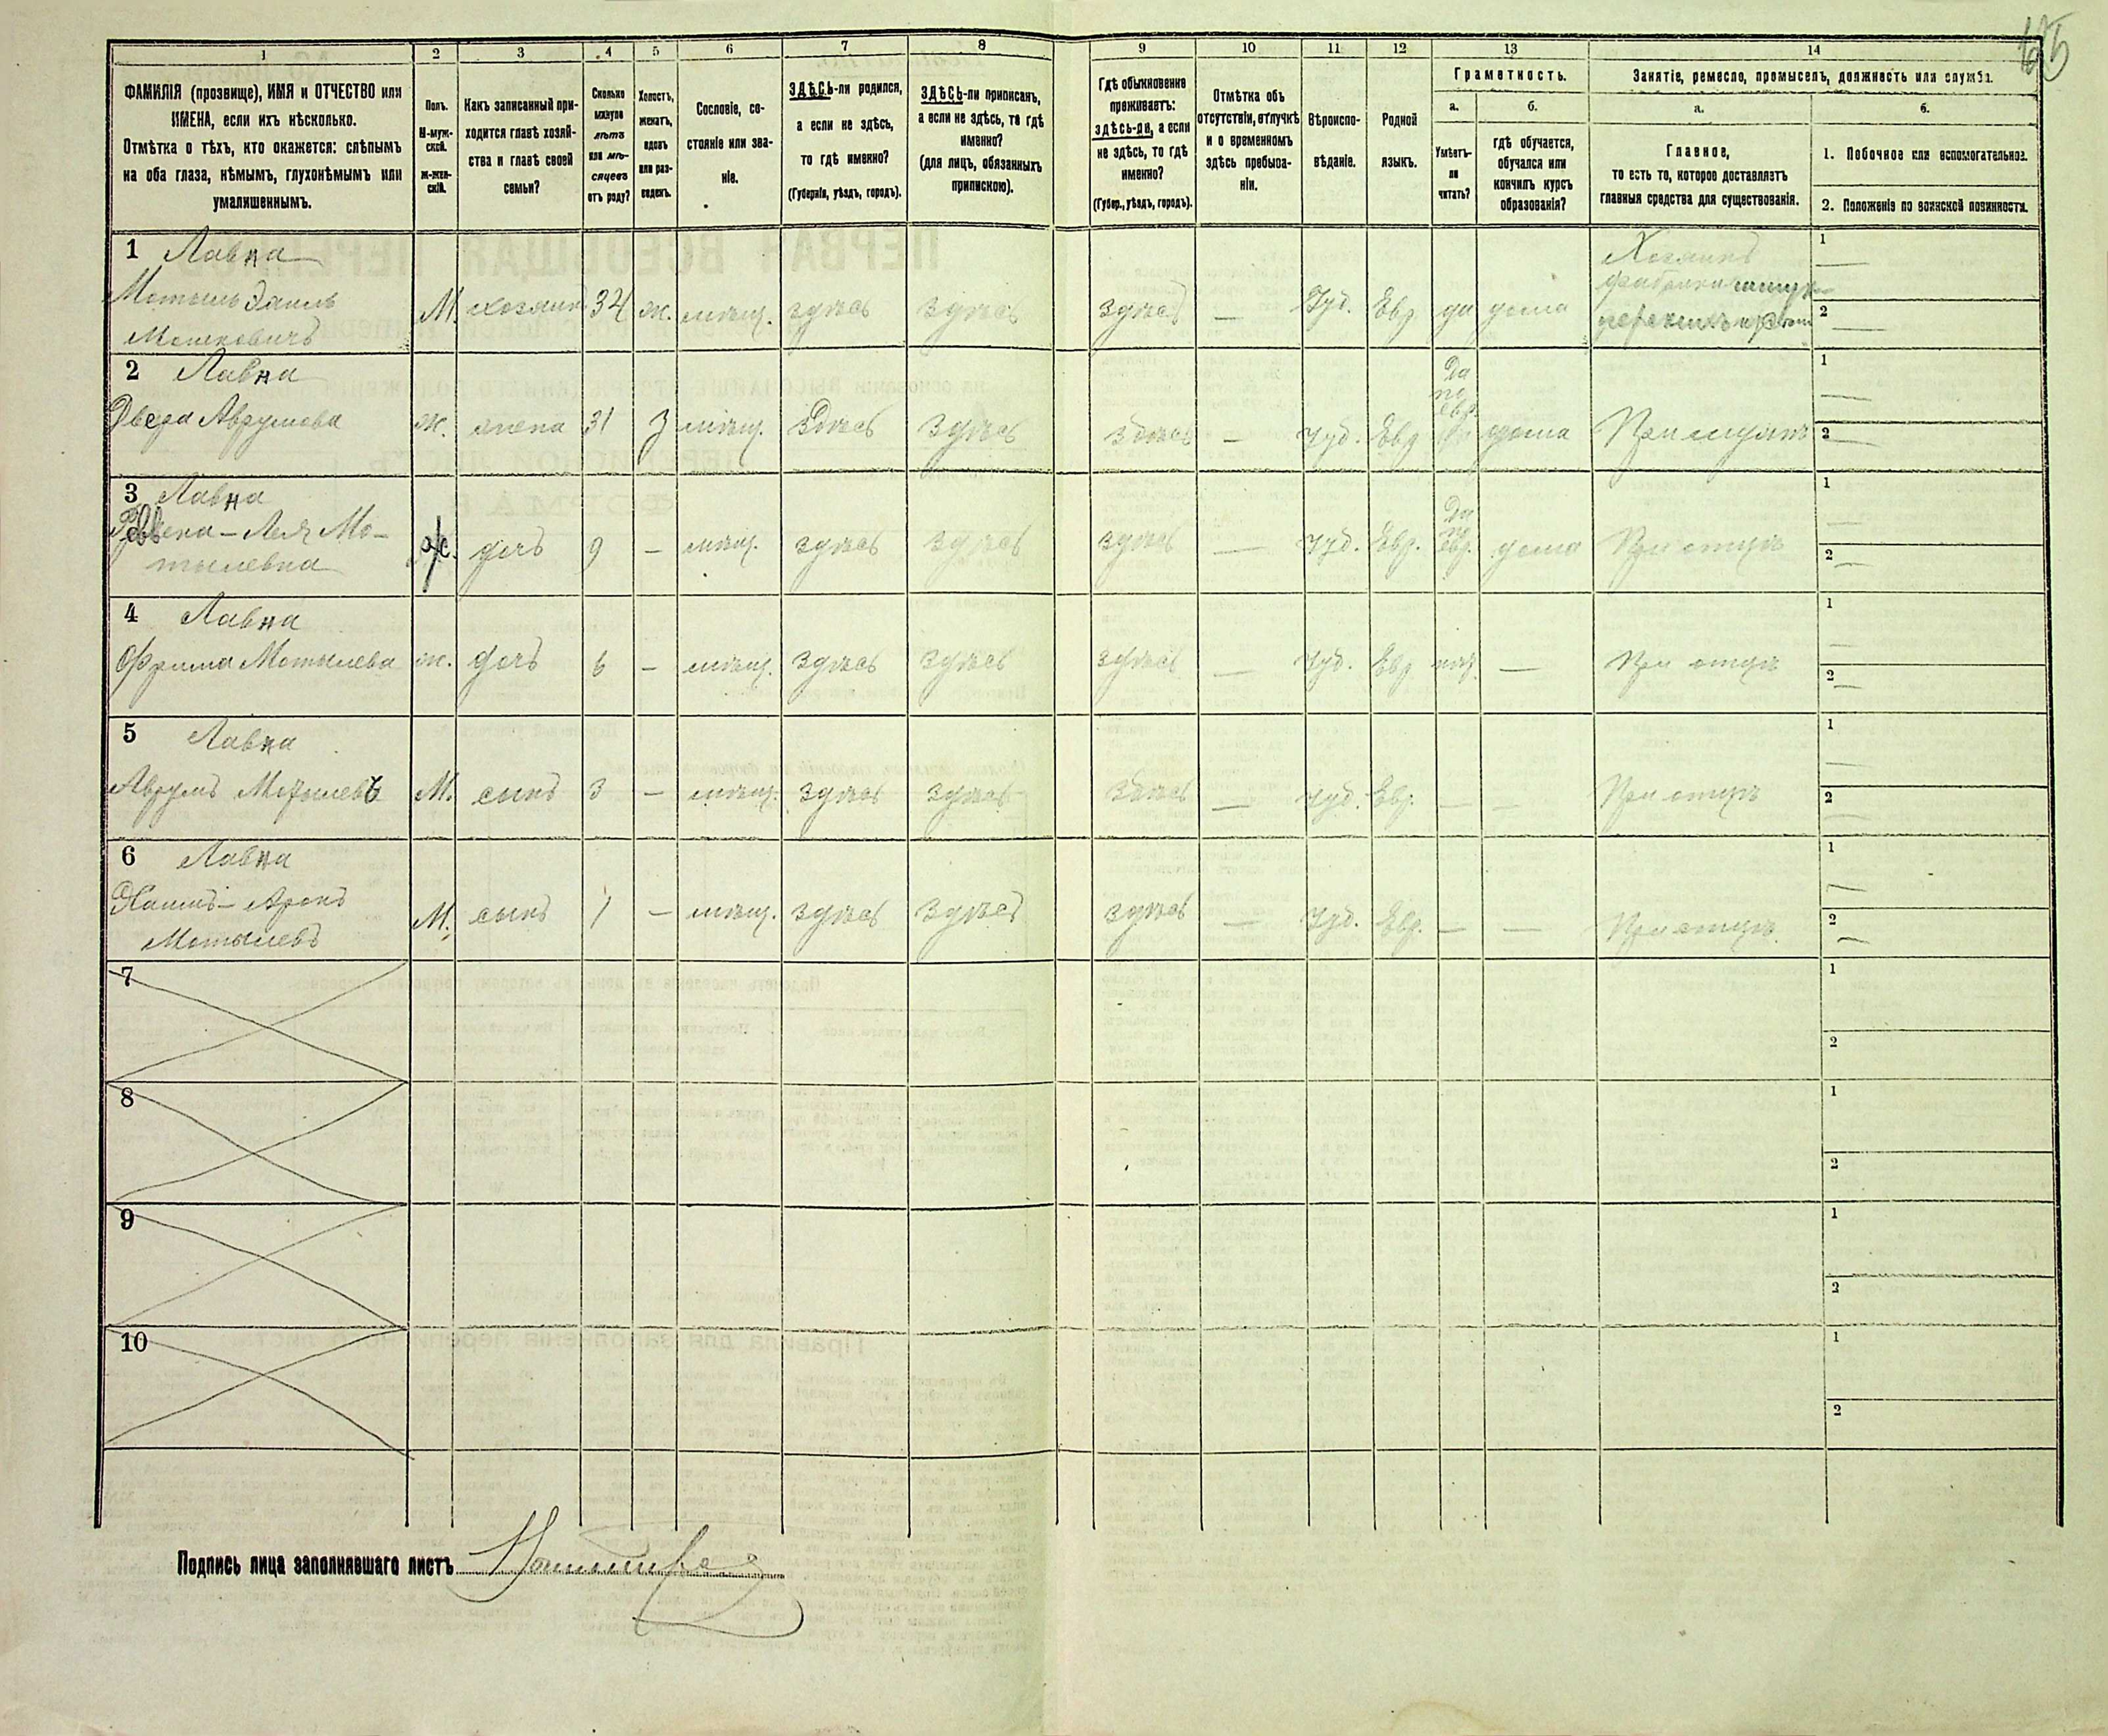 65
1 2 3 4 5 6 7 8 9 10 11 12 13 14
ФАМИЛІЯ (прозвище), ИМЯ и ОТЧЕСТВО или
ИМЕНА, если ихъ нѣсколько.
Отмѣтка о тѣхъ, кто окажется: слѣпымъ
на оба глаза, нѣмымъ, глухонѣмымъ или
умалишеннымъ.
Полъ.
М-муж-
ской.
Ж-жен-
скій.
Какъ записанный при-
ходится главѣ хозяй-
ства и главѣ своей
семьи?
Сколько
минуло
лѣтъ
или мѣ-
сяцевъ
отъ роду?
Холостъ,
женатъ,
вдовъ
или раз-
веденъ.
Сословіе, со-
стояніе или зва-
ніе.
ЗДѢСЬ-ли родился,
а если не здѣсь,
то гдѣ именно?
(Губернія, уѣздъ, городъ).
ЗДѢСЬ-ли приписанъ,
а если не здѣсь, то гдѣ
именно?
(для лицъ, обязанныхъ
припискою).
Гдѣ обыкновенно
проживаетъ:
здѣсь-ли, а если
не здѣсь, то гдѣ
именно?
(Губер., уѣздъ, городъ).
Отмѣтка объ
отсутствіи, отлучкѣ
и о временномъ
здѣсь пребыва-
ніи.
Вѣроиспо-
вѣданіе.
Родной
языкъ.
Грамотность.
а.
Умѣетъ-
ли
читать?
б.
гдѣ обучается,
обучался или
кончилъ курсъ
образованія?
Занятіе, ремесло, промыселъ, должность или служба.
а.
Главное,
то есть то, которое доставляетъ
главныя средства для существованія.
б.
1. Побочное или вспомогательное.
2. Положеніе по воинской повинности.
1 Лавна
Мотыль Даниль
Мошковичъ
М. хозяинъ 34 ж. мѣщ. здѣсь здѣсь здѣсь — Іуд. Евр. да дома
Хозяинъ
фабрики
1 —
2 —
2 Лавна
Двера Аврумова ж. жена 31 з мѣщ. Здѣсь Здѣсь здѣсь — Іуд. Евр
Да
по
евр.
дома При мужѣ
1 —
2 —
3 Лавна
Ревека-Лея Мо-
тылевна
ж. дочь 9 — мѣщ. здѣсь здѣсь здѣсь — Іуд. Евр.
Да
по
Евр.
дома При отцѣ
1 —
2 —
4 Лавна
Фрима Мотылева ж. дочь 6 — мѣщ. здѣсь здѣсь здѣсь — Іуд. Евр нѣт — При отцѣ
1 —
2 —
5 Лавна
Аврумъ Мотылевъ М. сынъ 3 — мѣщ. здѣсь здѣсь здѣсь — Іуд. Евр. — — При отцѣ
1 —
2 —
6 Лавна
Хаимъ-Аронъ
Мотылевъ
М. сынъ 1 — мѣщ. здѣсь здѣсь здѣсь — Іуд. Евр. — — При отцѣ
1 —
2 —
7
1
2
8
1
2
9
1
2
10
1
2
Подпись лица заполнявшаго листъ